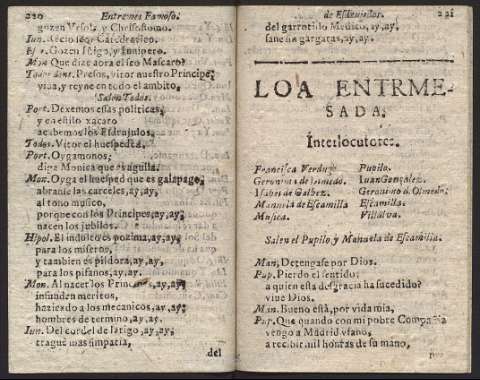 220 Entremes Famoso.
gozen Vrsola, y Chrisostomo.
Iun. Recio soy. Catedratico.
Gozen Iñigo, y Iunipero.
Mon. Que dize aora el seo Mascaro?
Todos. Presos, vitor nuestro Principe,
viua, y reyne en todo el ambito.
Salen Todos.
Port. Dexemos essas politicas,
y en estilo xacaro
acabemos los Esdrujulos.
Todos. Vitor el huespeda.
Port. Oygamonos;
diga Monica que es aguilla.
Mon. Oyga el huesped que es galapago,
abranse las carceles, ay, ay,
al tono musico,
porque con los Principes, ay, ay,
nacen los jubilos.
Hipol. El indulto es pozima, ay, ay,
para los miseros,
y tambien es pildora, ay, ay,
para los pifanos, ay, ay.
Mon. Al nacer los Principes, ay, ay,
infunden meritos,
haziendo a los mecanicos, ay, ay,
hombres de termino, ay, ay.
Iun. Del cordel de latigo, ay, ay,
traguè mas simpatia,
del
de Esdrujulos. 221
del garrotillo Medico, ay, ay,
sane sin gargaras, ay, ay.
LOA ENTRME-
SADA.
Interlocutores.
Francisca Verdugo. Pupilo.
Geronimo de Olmedo. Iuan Gonçalez.
Mabel de Galbez. Geronimo d. Olmedo.
Manuela de Escamilla Escamilla.
Musica. Villalva.
Salen el Pupilo, y Manuela de Escamilla.
Man. Detengase por Dios.
Pup. Pierdo el sentido;
a quien esta desgracia ha sucedido?
viue Dios.
Man. Bueno està, por vida mia,
Pup. Que quando con mi pobre Compañia
vengo a Madrid vfano,
a recibir mil honras de su mano,